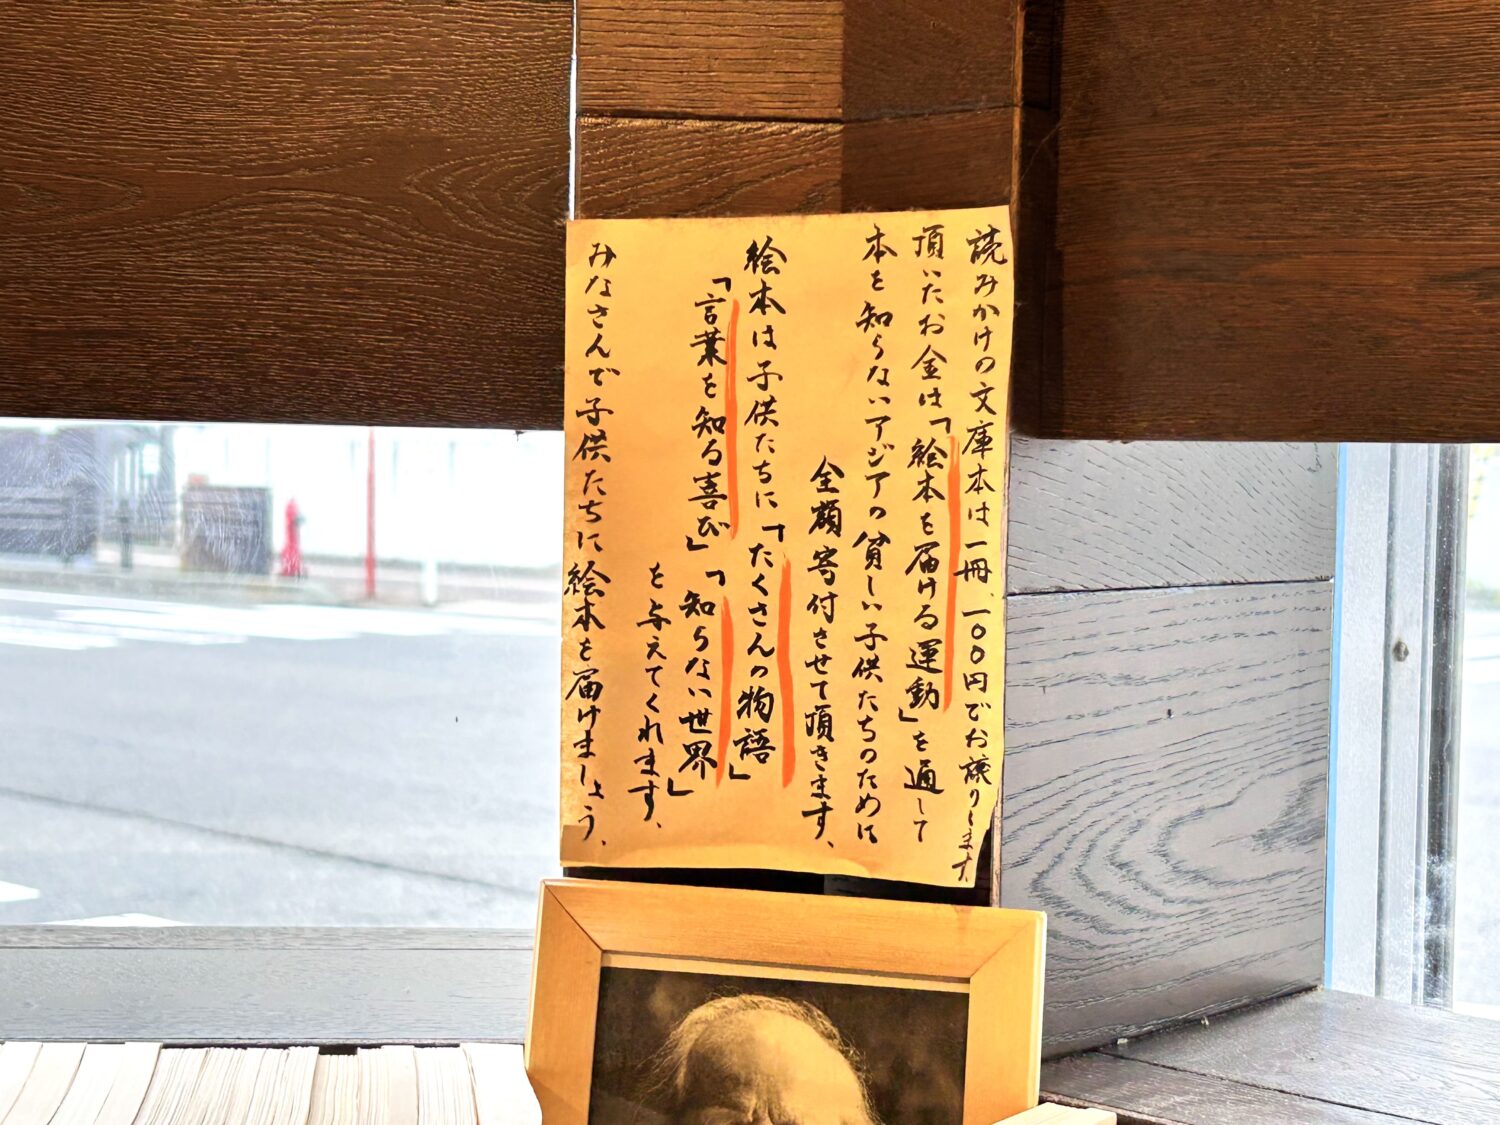 読みかけの文庫本は一冊、一〇〇円でお譲りします。
頂いたお金は「絵本を届ける運動」を通して
本を知らないアジアの貧しい子供たちのために
全額寄付させて頂きます、
絵本は子供たちに「たくさんの物語」
「言葉を知る喜び」「知らない世界」
を与えてくれます、
みなさんで子供たちに絵本を届けましょう、